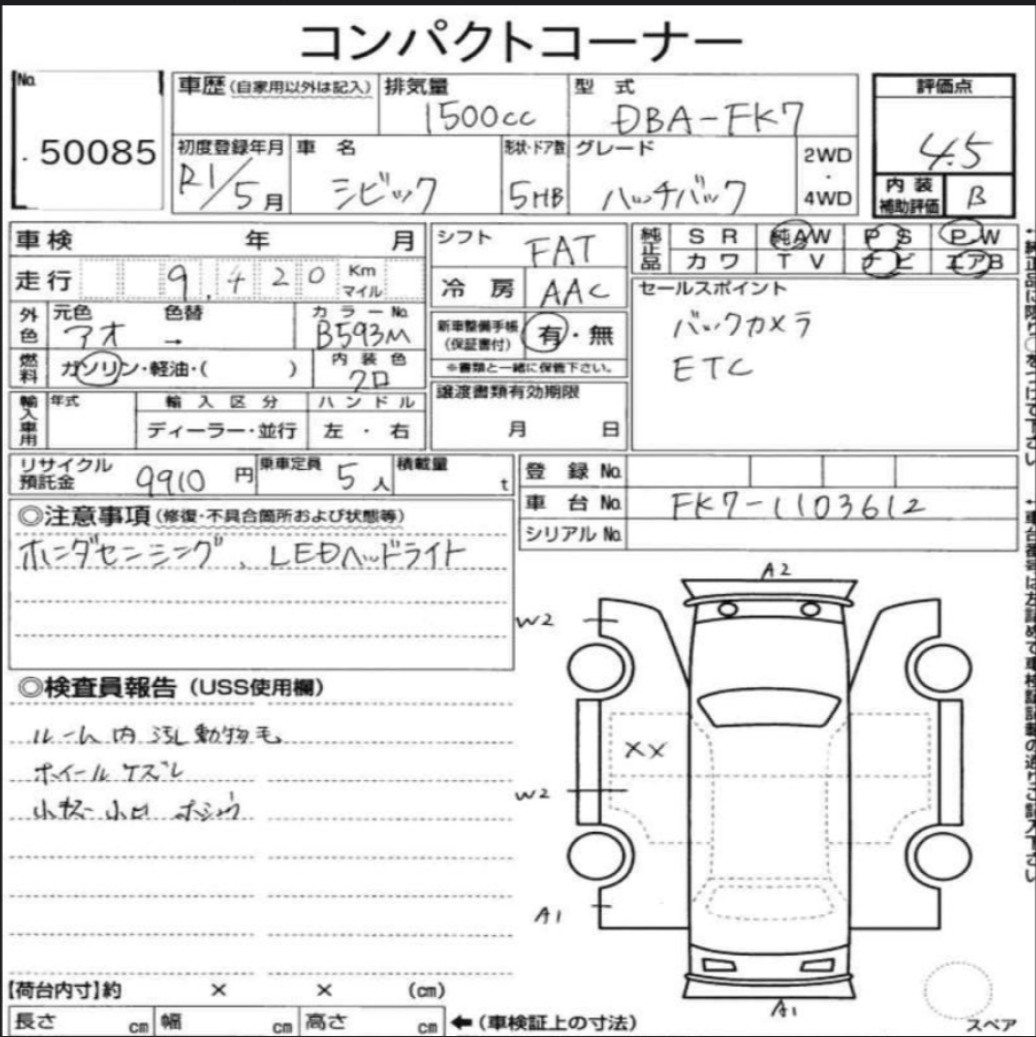 コンパクトコーナー
No. 50085
車歴 (自家用以外は記入) 排気量 1500cc 型式 DBA-FK7
評価点 4.5
初度登録年月 R1/5月 車名 シビック 形状・ドア数 5HB グレード ハッチバック 2WD・4WD
内装補助評価 B
車検 年 月
シフト FAT
純正品 SR 純AW PS PW
カワ TV ナビ エアB
走行 9.420 Km マイル
冷房 AAC
セールスポイント
バックカメラ
ETC
外色 元色 アオ 色替 → カラーNo. B593M
新車整備手帳 (保証書付) 有・無
※書類と一緒に保管下さい。
燃料 ガソリン・軽油・( ) 内装色 クロ
譲渡書類有効期限
月 日
輸入車用 年式 輸入区分 ハンドル
ディーラー・並行 左・右
リサイクル預託金 9910円 乗車定員 5人 積載量 t
登録No.
車台No. FK7-1103612
シリアルNo.
◎注意事項 (修復・不具合箇所および状態等)
ホンダセンシング、LEDヘッドライト
◎検査員報告 (USS使用欄)
ルーム内 汚し 動物毛
ホイールケズレ
A2
W2
XX
W2
A1
A1
スペア
【荷台内寸】約 × × (cm)
長さ cm 幅 cm 高さ cm ←(車検証上の寸法)